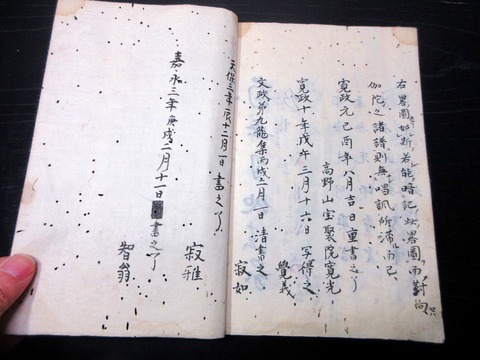 右畧圖如斯若能暗記此畧圖而對向
伽陀之諸譜則無唱訊所滞而已
寛政元己酉年八月吉日重書之了
高野山宝聚院寛光
寛政十年戊午三月十六日写得之
覺義
文政第九龍集丙戌二月一日清書之
寂如
天保三年辰十二月一日書之了
寂雅
嘉永三年庚戌二月十一日書之了
智翁